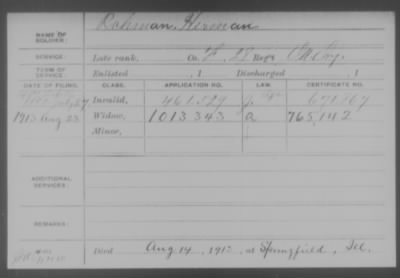 NAME OF SOLDIER: Rohman, Herman
SERVICE: Late rank, Co. F, 28 Reg't
TERM OF SERVICE: Enlisted , 1 Discharged , 1
DATE OF FILING. CLASS. APPLICATION NO. LAW. CERTIFICATE NO.
Invalid, 461.529
1913 Aug 23 Widow, 1013343 a 765,142
Minor,
ADDITIONAL SERVICES:
REMARKS:
Died Aug 14, 1913, at Springfield, Ill.